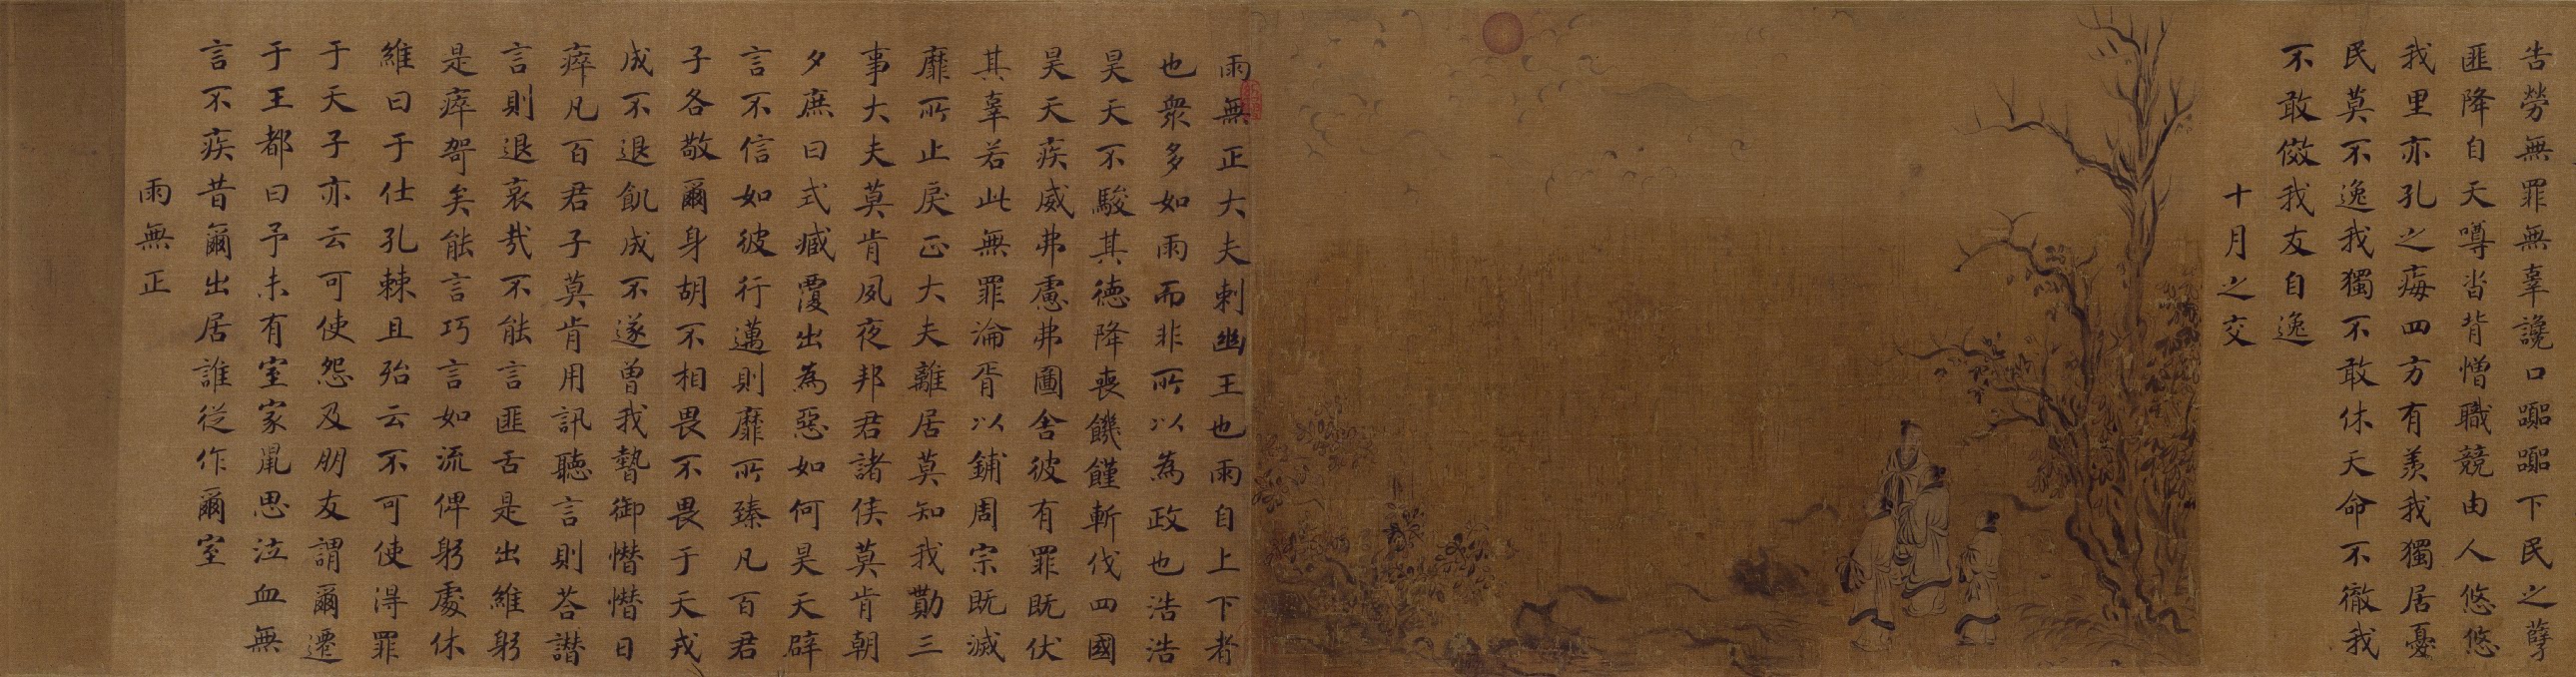 告勞無罪無辜讒口嘂嘂下民之孽
匪降自天噂沓背憎職競由人悠悠
我里亦孔之痗四方有羨我獨居憂
民莫不逸我獨不敢休天命不徹我
不敢傚我友自逸
十月之交
雨無正大夫刺幽王也雨自上下者
也衆多如雨而非所以為政也浩浩
昊天不駿其德降喪饑饉斬伐四國
昊天疾威弗慮弗圖舍彼有罪既伏
其辜若此無罪淪胥以鋪周宗既滅
靡所止戾正大夫離居莫知我勩三
事大夫莫肯夙夜邦君諸侯莫肯朝
夕庶曰式臧覆出為惡如何昊天辟
言不信如彼行邁則靡所臻凡百君
子各敬爾身胡不相畏不畏于天戎
成不退飢成不遂曾我暬御憯憯日
瘁凡百君子莫肯用訊聽言則荅譖
言則退哀哉不能言匪舌是出維躬
是瘁哿矣能言巧言如流俾躬處休
維曰于仕孔棘且殆云不可使得罪
于天子亦云可使怨及朋友謂爾遷
于王都曰予未有室家鼠思泣血無
言不疾昔爾出居誰從作爾室
雨無正